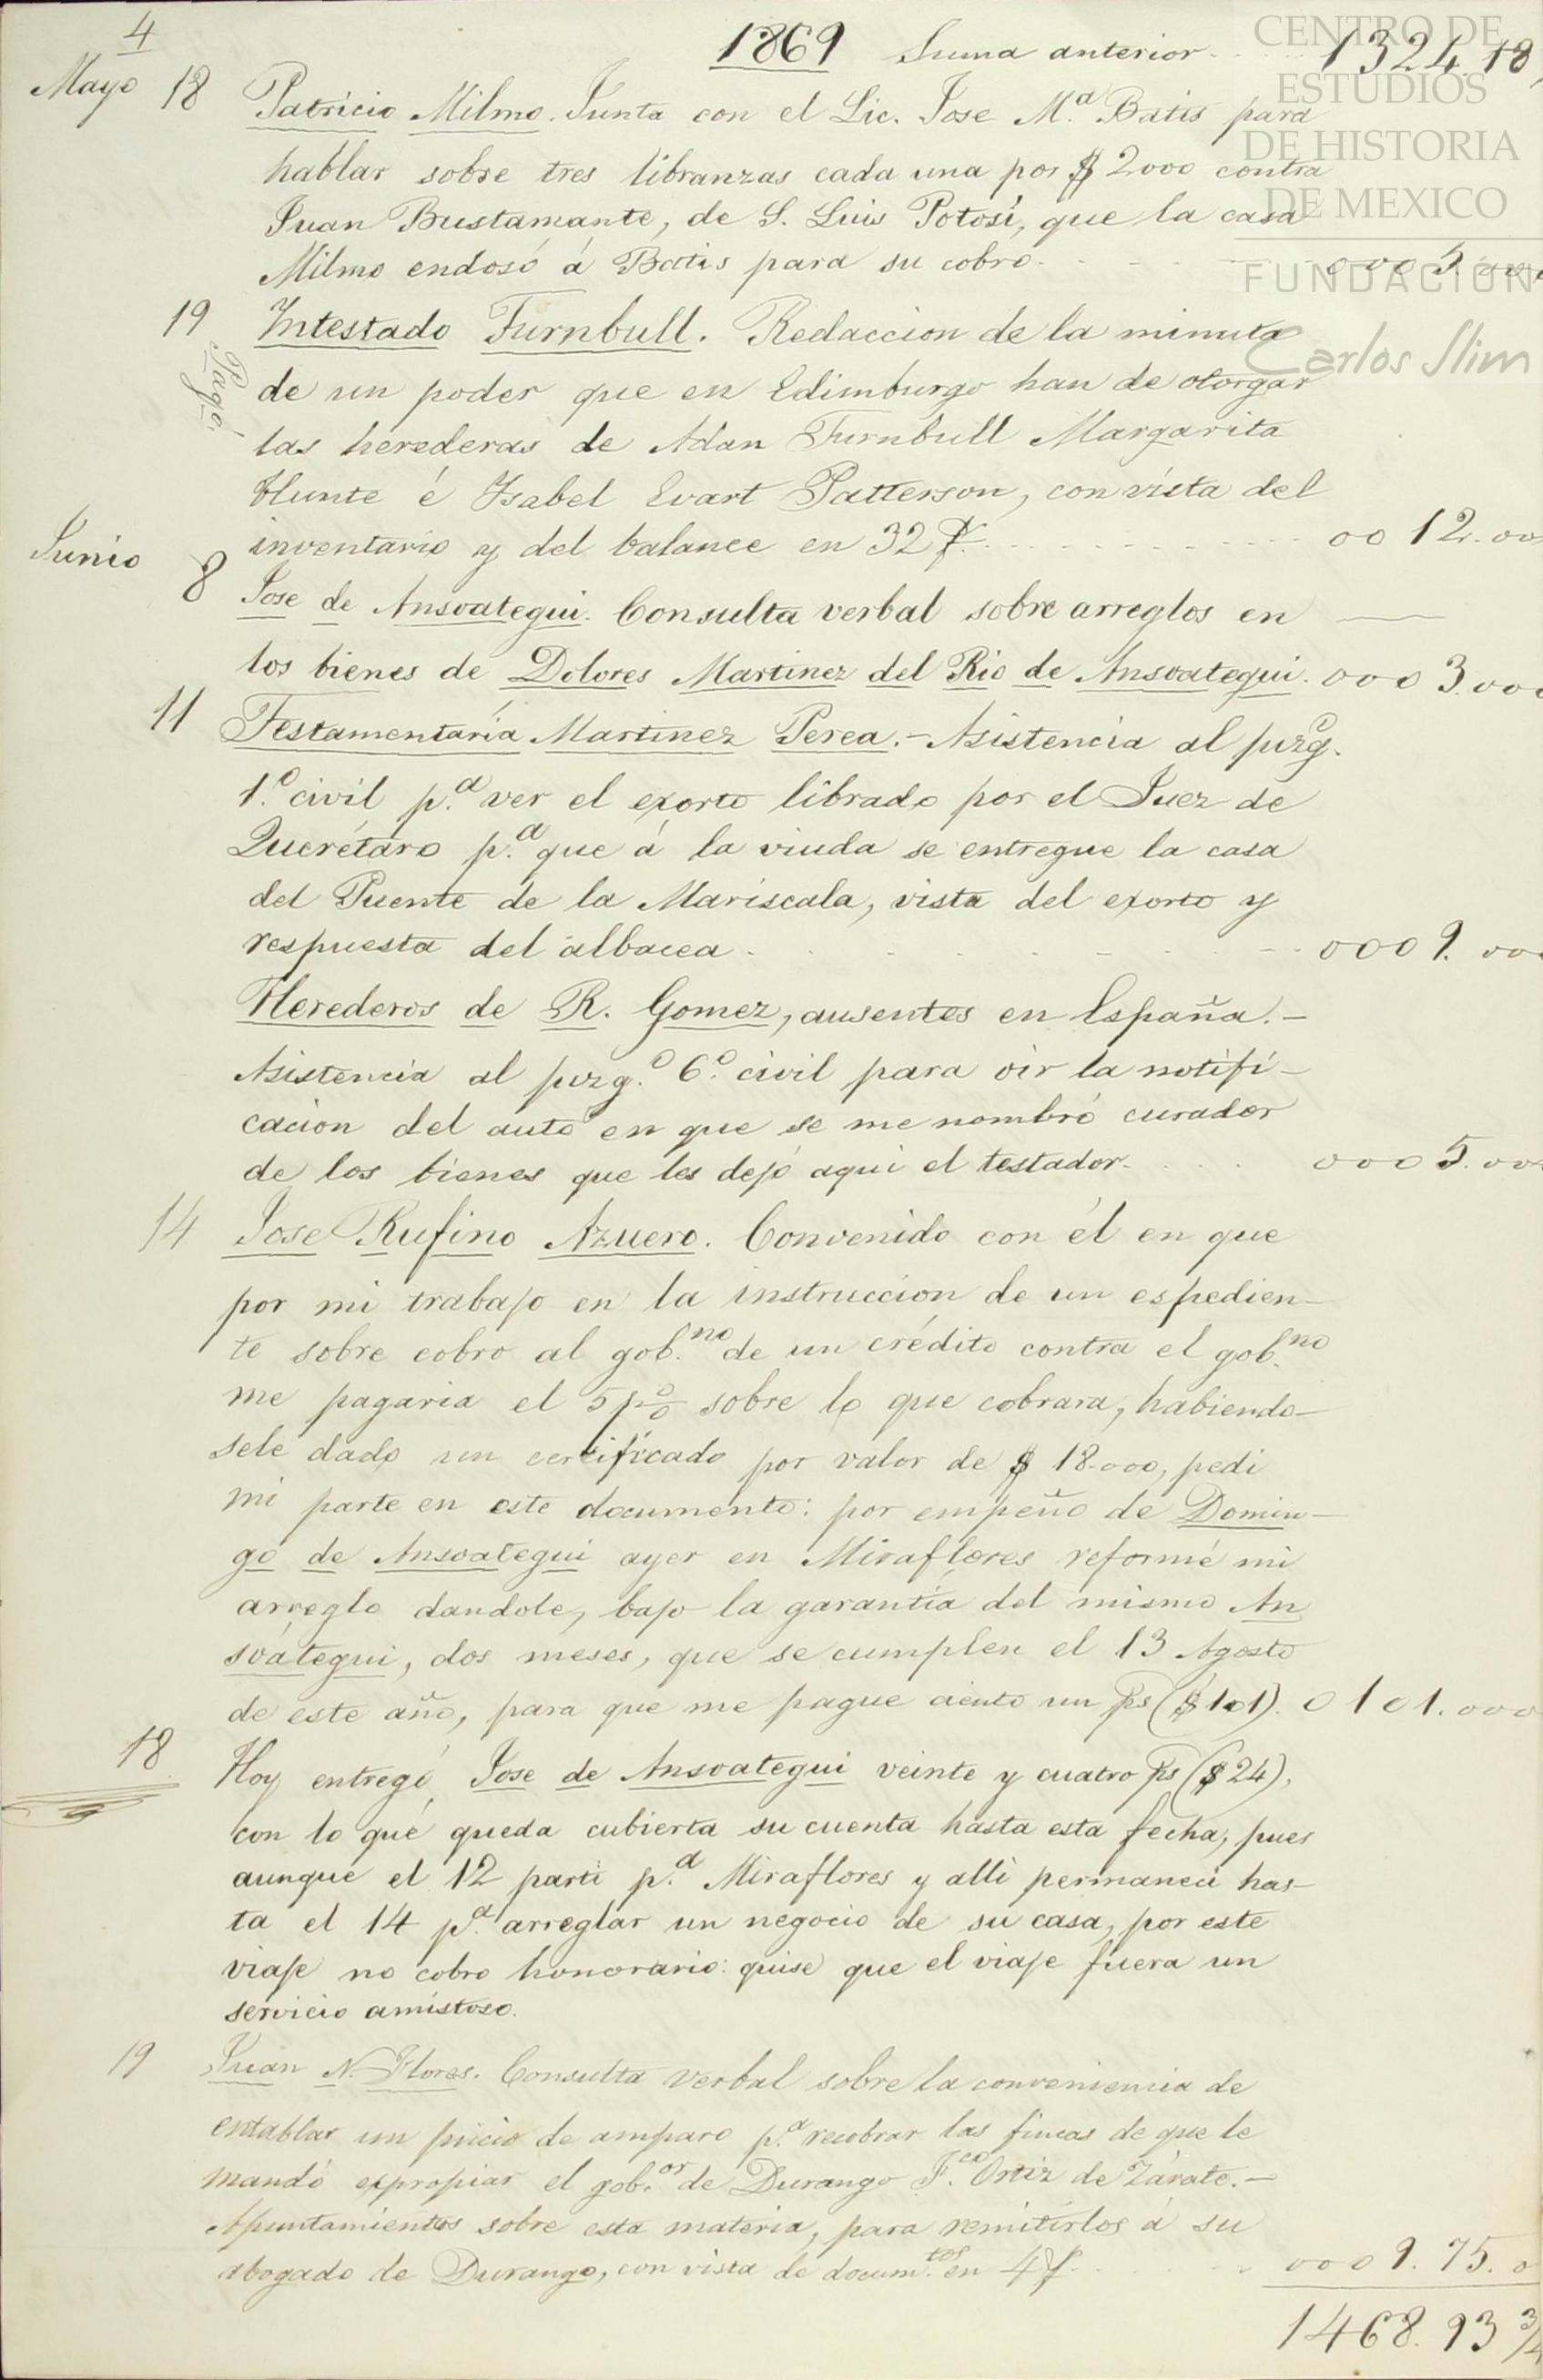 4
1869 Suma anterior 1324.18
CENTRO DE
ESTUDIOS
DE HISTORIA
DE MEXICO
FUNDACION
Carlos Slim
Mayo 18 Patricio Milmo. Junta con el Lic. Jose M.ª Batis para
hablar sobre tres libranzas cada una por $ 2000 contra
Juan Bustamante, de S. Luis Potosí, que la casa
Milmo endosó á Batis para su cobro 0005.000
19 Intestado Turnbull. Redaccion de la minuta
Pagó.
de un poder que en Edimburgo han de otorgar
las herederas de Adan Turnbull Margarita
Hunte é Isabel Evart Patterson, con vista del
inventario y del balance en 32 f. 0012.00
Junio 8 Jose de Ansoategui. Consulta verbal sobre arreglos en
los bienes de Dolores Martinez del Rio de Ansoategui. 0003.000
11 Testamentaría Martinez Perea.- Asistencia al juzg.º
1.º civil p.ª ver el exorto librado por el Juez de
Querétaro p.ª que á la viuda se entregue la casa
del Puente de la Mariscala, vista del exorto y
respuesta del albacea 0009.000
Herederos de R. Gomez, ausentes en España.-
Asistencia al juzg.º 6.º civil para oir la notifi-
cacion del auto en que se me nombró curador
de los bienes que les dejó aqui el testador. 0005.000
14 Jose Rufino Azuero. Convenido con él en que
por mi trabajo en la instruccion de un espedien-
te sobre cobro al gob.no de un crédito contra el gob.no
me pagaria el 5 p% sobre lo que cobrara, habiendo-
sele dado un certificado por valor de $ 18.000, pedi
mi parte en este documento: por empeño de Domin-
go de Ansoategui ayer en Miraflores reformé mi
arreglo dandole, bajo la garantía del mismo An
soátegui, dos meses, que se cumplen el 13 Agosto
de este año, para que me pague ciento un ps ($101). 0101.000
18 Hoy entregó Jose de Ansoategui veinte y cuatro ps ($24),
con lo que queda cubierta su cuenta hasta esta fecha, pues
aunque el 12 parti p.ª Miraflores y alli permaneci has-
ta el 14 p.ª arreglar un negocio de su casa, por este
viaje no cobro honorario: quise que el viaje fuera un
servicio amistoso.
19 Juan N. Flores. Consulta verbal sobre la conveniencia de
entablar un juicio de amparo p.ª recobrar las fincas de que le
mandó expropiar el gob.or de Durango F.co Ortiz de Zárate.-
Apuntamientos sobre esta materia, para remitirlos á su
abogado de Durango, con vista de docum.tos en 4 f. 0009.75.0
1468.93 3/4